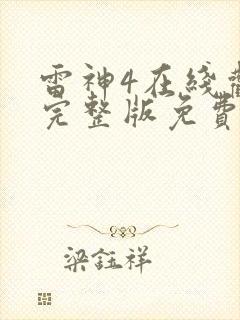 雷神4在线
完整版免费
梁钰祥